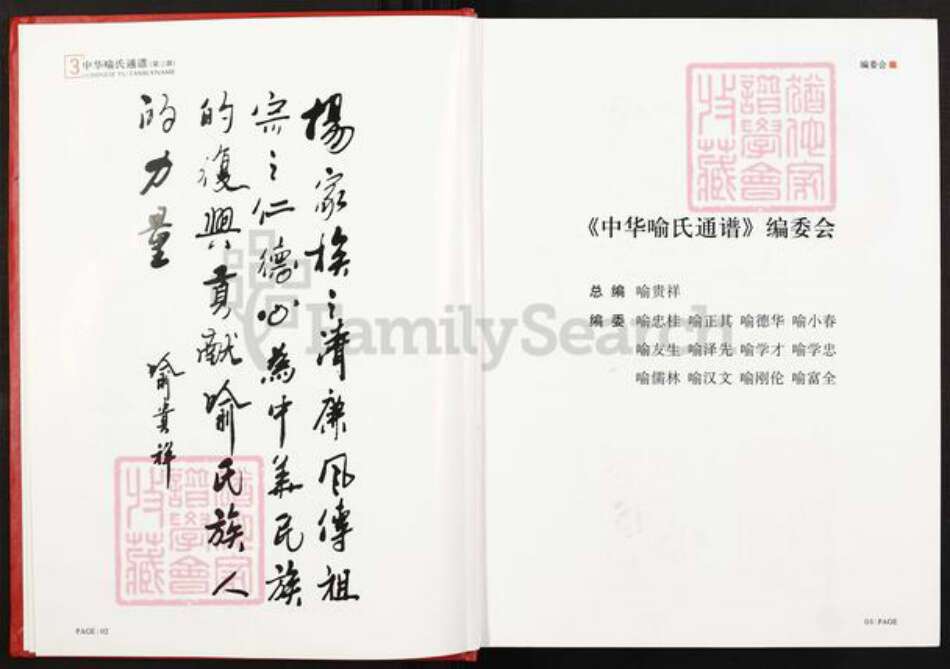 3 中华喻氏通谱(第三部)
CHINESE YU FAMILYNAME
楊家族之清廉风傳祖
宗之仁德心為中华民族
的復興貢献喻氏族人
的力量
喻貴祥
猶他家
譜學會
收藏
PAGE | 02
FamilySearch
编委会
猶他家
譜學會
收藏
《中华喻氏通谱》编委会
总 编 喻贵祥
编 委 喻忠桂 喻正其 喻德华 喻小春
喻友生 喻泽先 喻学才 喻学忠
喻儒林 喻汉文 喻刚伦 喻富全
03 | PAGE